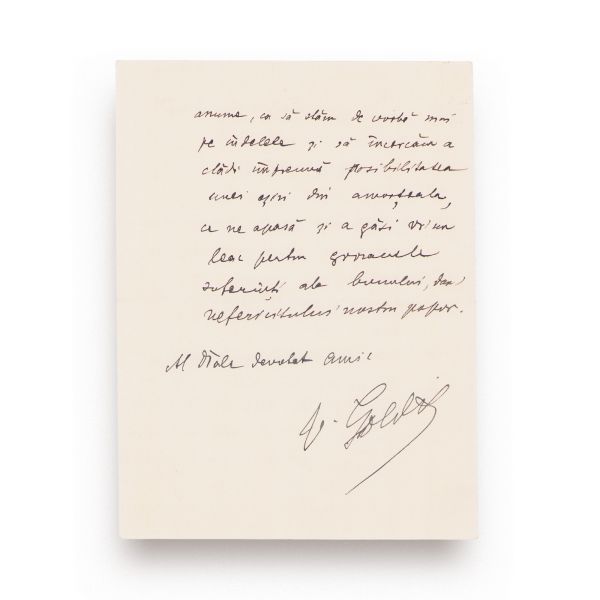 anume, ca să stăm de vorbă mai
pe îndelele și să încercăm a
clădi împreună posibilitatea
unei eșiri din amorțeala,
ce ne apasă și a găsi vr'un
leac pentru grozavele
suferinți ale bunului, dar
nefericitului nostru popor.
Al Dtale devotat amic
V. Goldiș